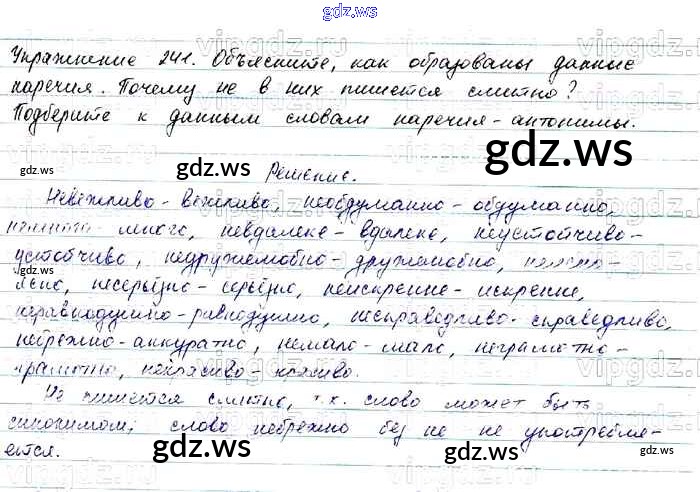 gdz.ws
Упражнение 241. Объясните, как образованы данные
наречия. Почему не в них пишется слитно?
Подберите к данным словам наречия-антонимы.
gdz.ws gdz.ws
Решение.
Невежливо - вежливо, необдуманно - обдуманно,
много, невдалеке - вдалеке, неустойчиво -
устойчиво, недружелюбно - дружелюбно,
ясно, несерьёзно - серьёзно, неискренне - искренне,
неравнодушно - равнодушно, несправедливо - справедливо,
небрежно - аккуратно, немало - мало, неграмотно -
грамотно, некрасиво - красиво.
Не пишется слитно, т.к. слово может быть
синонимом; слово небрежно без не не употребля-
ется.
gdz.ws gdz.ws